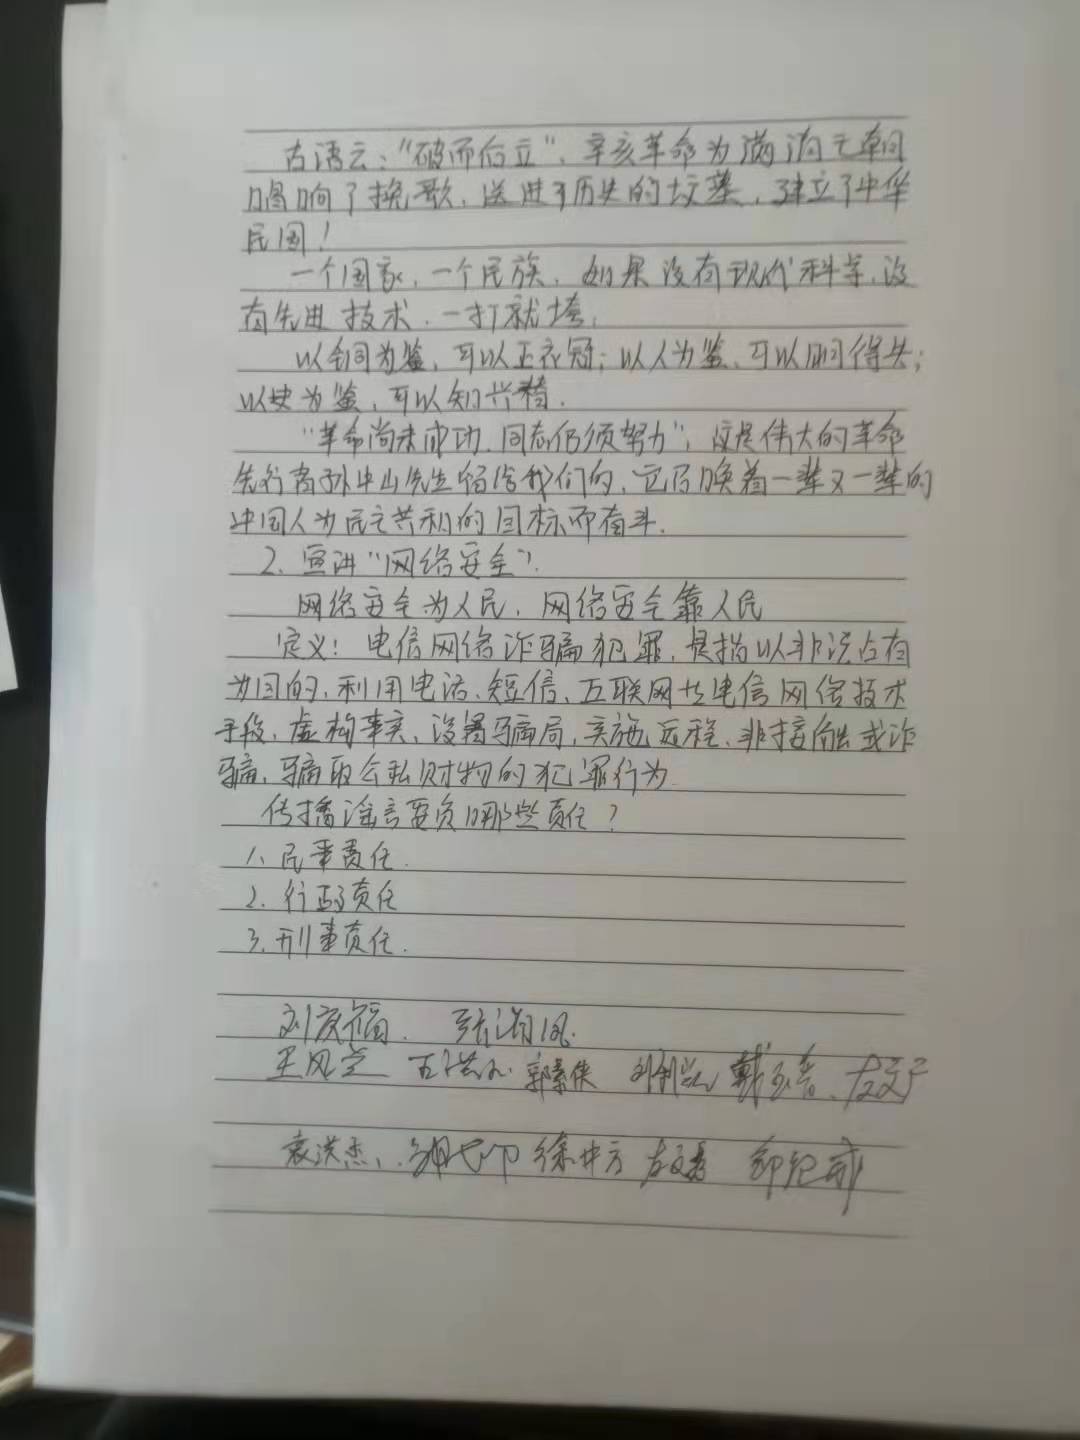 古语云："破而后立"，辛亥革命为满清王朝
唱响了挽歌，送进了历史的坟墓，建立了中华
民国！
一个国家，一个民族，如果没有现代科学，没
有先进技术，一打就垮，
以铜为鉴，可以正衣冠；以人为鉴，可以明得失；
以史为鉴，可以知兴替．
"革命尚未成功，同志仍须努力"，这是伟大的革命
先行者孙中山先生留给我们的，它召唤着一辈又一辈的
中国人为民主共和的目标而奋斗．
2．宣讲"网络安全"．
网络安全为人民，网络安全靠人民
定义：电信网络诈骗犯罪，是指以非法占有
为目的，利用电话、短信、互联网等电信网络技术
手段，虚构事实，设置骗局，实施远程、非接触式诈
骗，骗取公私财物的犯罪行为．
传播谣言要负哪些责任？
1、民事责任．
2、行政责任
3、刑事责任．
刘庆福．
王风兰 郭素侠
袁洪杰，徐中方